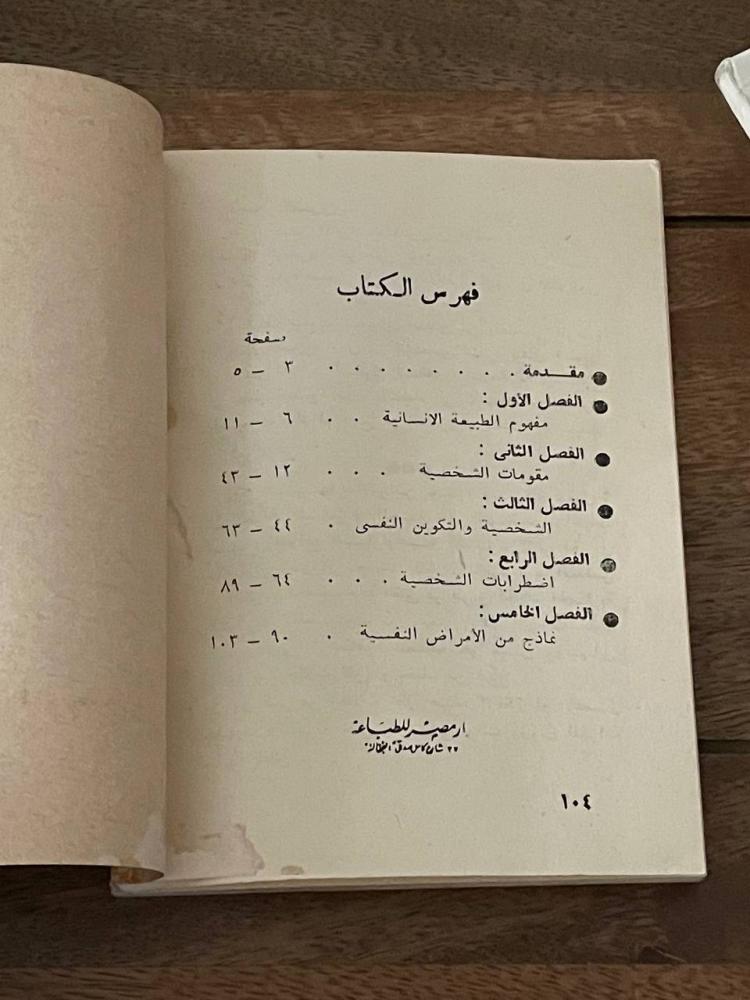 فهرس الكتاب
صفحة
مقدمة . . . . . . . . ٣ – ٥
الفصل الأول :
مفهوم الطبيعة الانسانية . . ٦ – ١١
الفصل الثانى :
مقومات الشخصية . . . ١٢ – ٤٣
الفصل الثالث :
الشخصية والتكوين النفسى . ٤٤ – ٦٣
الفصل الرابع :
اضطرابات الشخصية . . . ٦٤ – ٨٩
الفصل الخامس :
نماذج من الأمراض النفسية . ٩٠ – ١٠٣
ار مصر للطباعة
شارع كامل صدقى
١٠٤